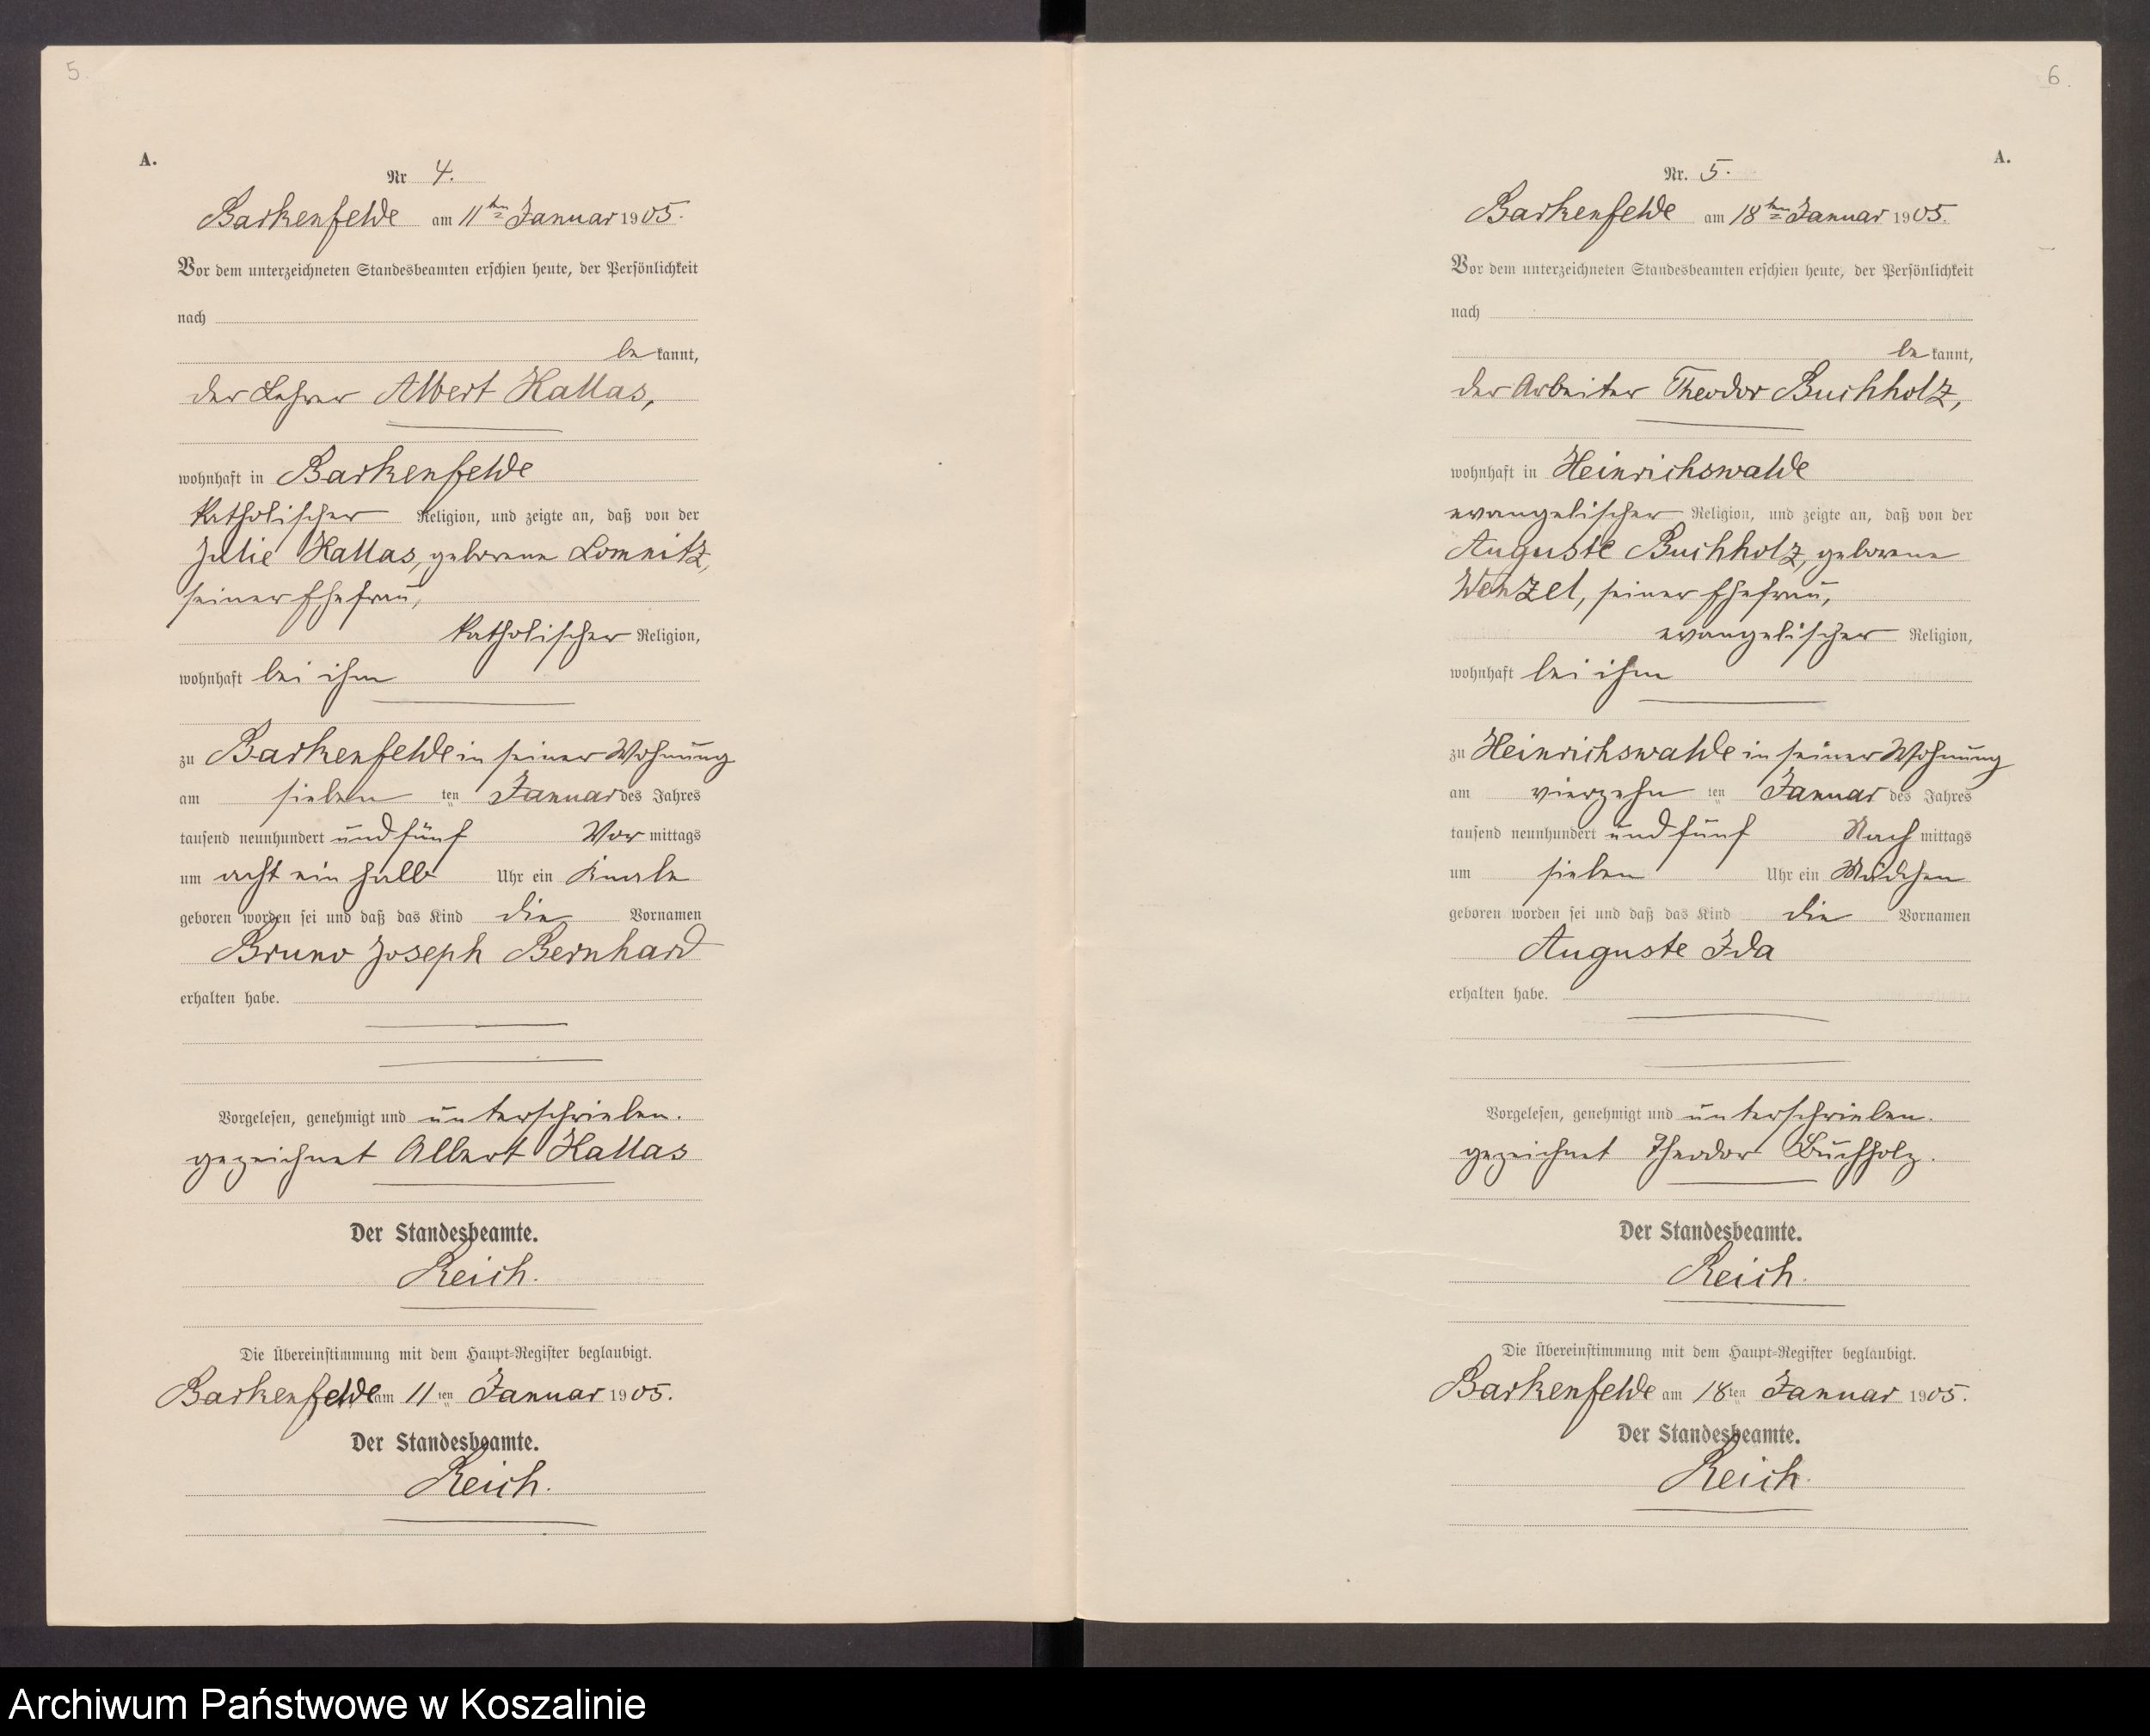 5.
A.
Nr 4.
Barkenfelde am 11ten Januar 1905.
Vor dem unterzeichneten Standesbeamten erschien heute, der Persönlichkeit
nach
be kannt,
der Lehrer Albert Kallas,
wohnhaft in Barkenfelde
katholischer Religion, und zeigte an, daß von der
Julie Kallas, geborene Lomnitz,
seiner Ehefrau,
katholischer Religion,
wohnhaft bei ihm
zu Barkenfelde in seiner Wohnung
am sieben ten Januar des Jahres
tausend neunhundert und fünf Vor mittags
um acht ein halb Uhr ein Knabe
geboren worden sei und daß das Kind die Vornamen
Bruno Joseph Bernhard
erhalten habe.
Vorgelesen, genehmigt und unterschrieben.
gezeichnet Albert Kallas
Der Standesbeamte.
Reich.
Die Übereinstimmung mit dem Haupt-Register beglaubigt.
Barkenfelde am 11 ten Januar 1905.
Der Standesbeamte.
Reich.
6.
A.
Nr. 5.
Barkenfelde am 18ten Januar 1905.
Vor dem unterzeichneten Standesbeamten erschien heute, der Persönlichkeit
nach
be kannt,
der Arbeiter Theodor Buchholz,
wohnhaft in Heinrichswalde
evangelischer Religion, und zeigte an, daß von der
Auguste Buchholz, geborene
Wenzel, seiner Ehefrau,
evangelischer Religion,
wohnhaft bei ihm
zu Heinrichswalde in seiner Wohnung
am vierzehn ten Januar des Jahres
tausend neunhundert und fünf Nach mittags
um sieben Uhr ein Mädchen
geboren worden sei und daß das Kind die Vornamen
Auguste Ida
erhalten habe.
Vorgelesen, genehmigt und unterschrieben.
gezeichnet Theodor Buchholz.
Der Standesbeamte.
Reich.
Die Übereinstimmung mit dem Haupt-Register beglaubigt.
Barkenfelde am 18 ten Januar 1905.
Der Standesbeamte.
Reich.
Archiwum Państwowe w Koszalinie